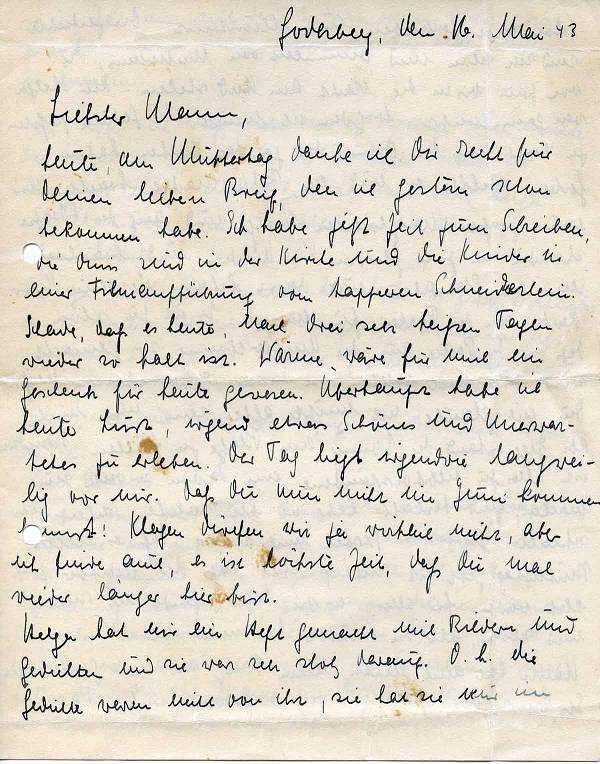 Godesberg, den 16. Mai 43
Liebster Mann,
heute, am Muttertag, danke ich Dir recht für
Deinen lieben Brief, den ich gestern schon
bekommen habe. Ich habe jetzt Zeit zum Schreiben,
die Omis sind in der Kirche und die Kinder in
einer Filmaufführung vom tapferen Schneiderlein.
Schade, daß es heute nach drei sehr heißen Tagen
wieder so kalt ist. Wärme wäre für mich ein
Geschenk für heute gewesen. Überhaupt habe ich
heute Lust, irgend etwas Schönes und Unerwar-
tetes zu erleben. Der Tag liegt irgendwie langwei-
lig vor mir. Daß Du nun nicht im Juni kommen
kannst! Klagen dürfen wir ja wirklich nicht, aber
ich finde auch, es ist höchste Zeit, daß Du mal
wieder länger hier bist.
Helga hat mir ein Heft gemacht mit Bildern und
Gedichten und sie war sehr stolz darauf. D. h. die
Gedichte waren nicht von ihr, sie hat sie nur